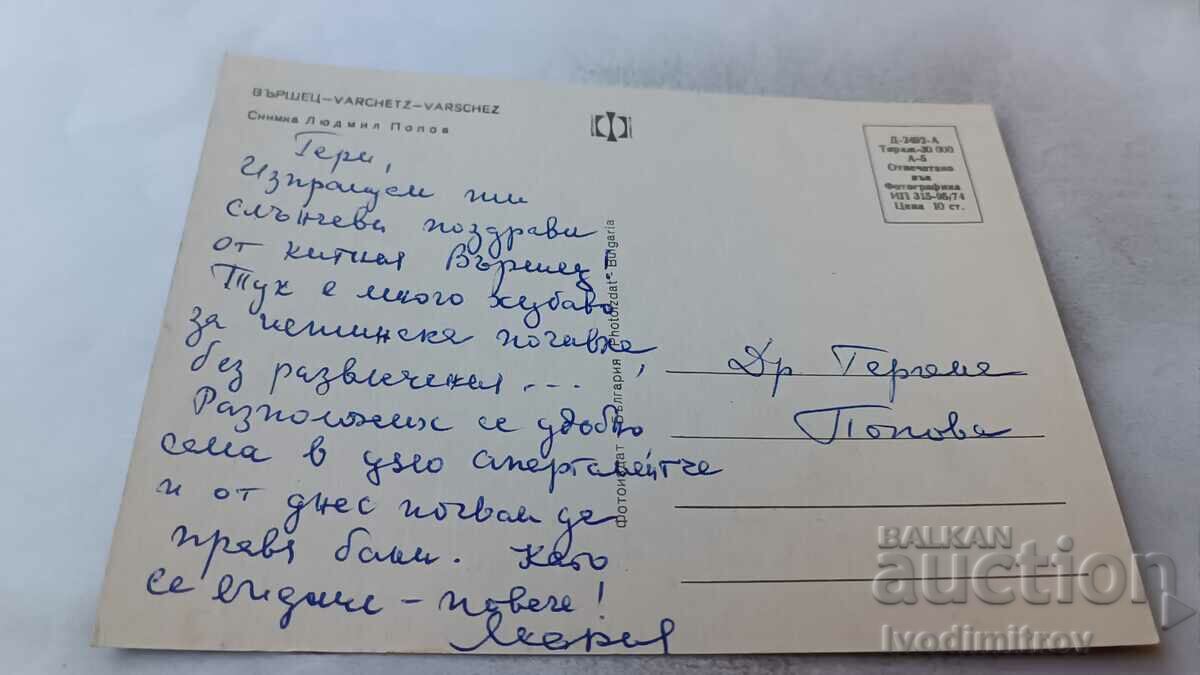 ВЪРШЕЦ–VARCHETZ–VARSCHEZ
Снимка Людмил Попов
Гери,
Изпращам ти
слънчеви поздрави
от китния Вършец!
Тук е много хубаво
за истинска почивка
без развлечения ... ,
Разположих се удобно
сама в цяло апартаментче
и от днес почвам да
правя бани. Като
се видим – повече!
Мария
Фотоиздат България "Photoizdat" Bulgaria
Д-2492-А
Тираж-30 000
А-5
Отпечатано
във
Фотографика
ИП 315-95/74
Цена 10 ст.
Др Гергана
Попова
BALKAN
auction
Ivodimitrov